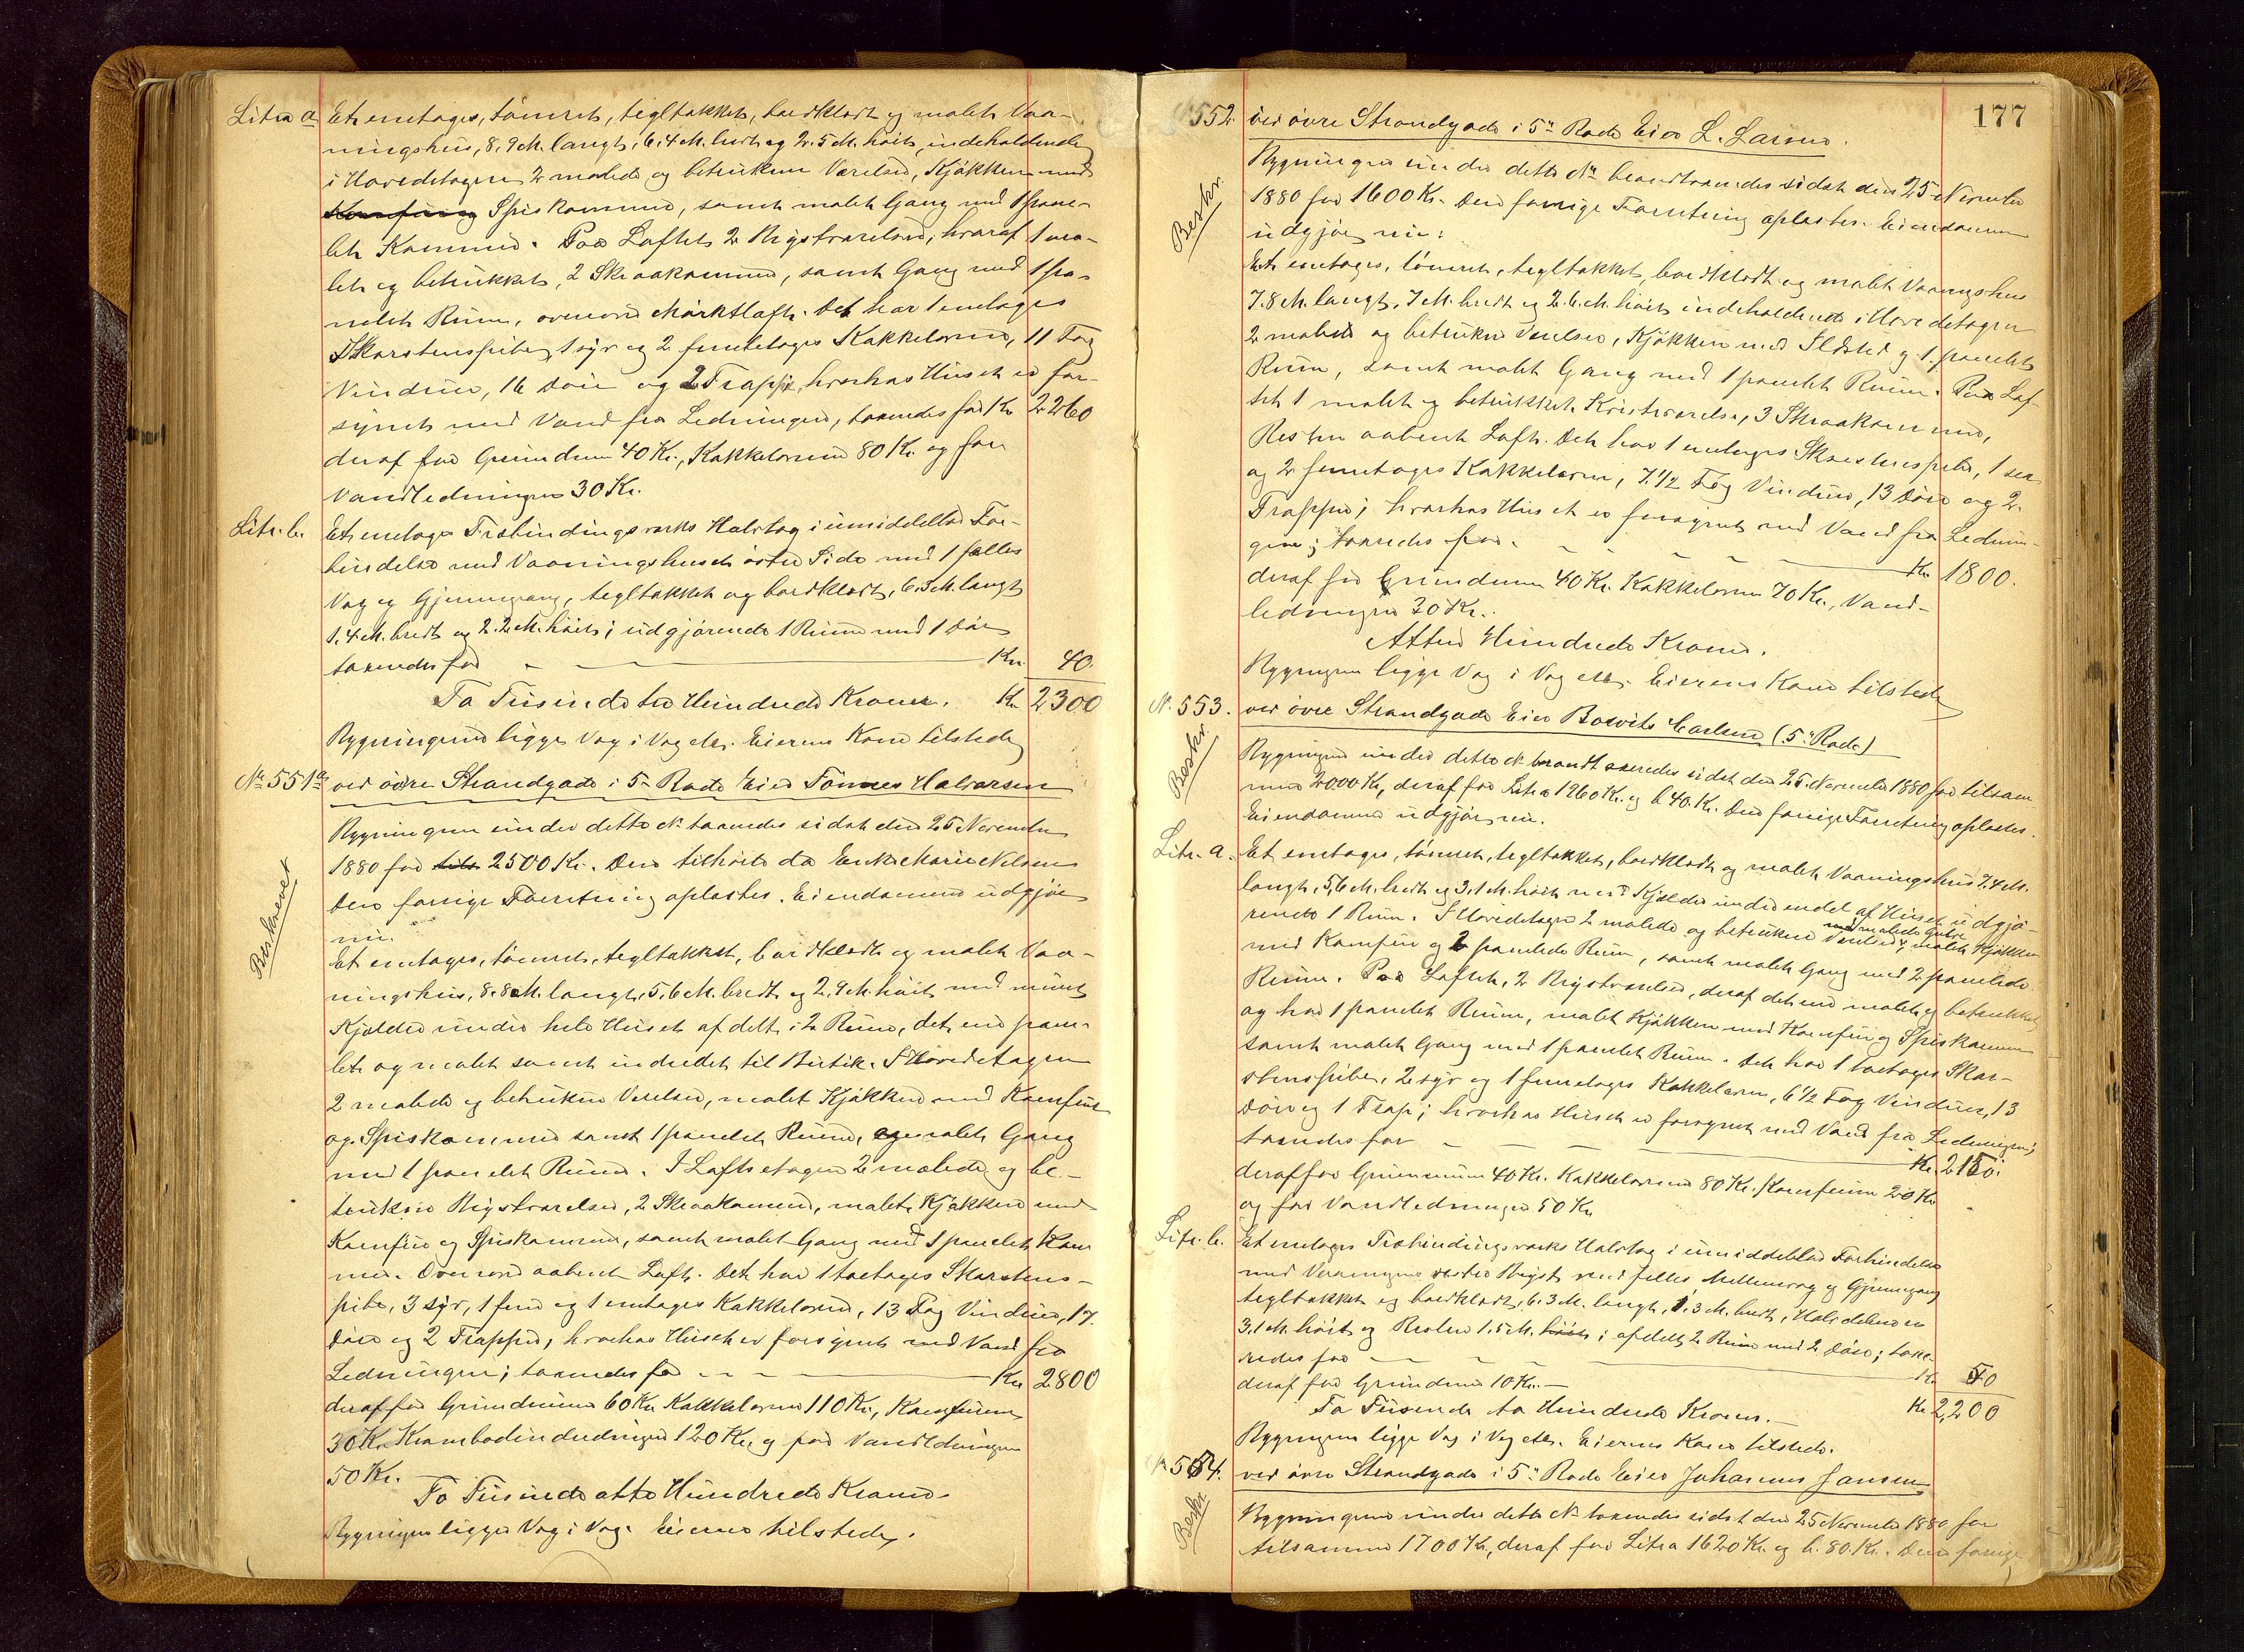 Litra a Et enetages, tømret, tegltækket, bordklædt og malet Vaa-
ningshus, 8,9 M. langt, 6,4 M. bredt og 2.5 M. høit, indeholdende
i Hovedetagen 2 malede og betrukne Værelser, Kjøkken med
Komfur og Spiskammer, samt malet Gang med 1 pane-
let Kammer. Paa Loftet 2 Kvistværelser, hvoraf 1 ma-
let og betrukket, 2 Skraakammer, samt Gang med 1 pa-
nelet Rum, ovenover Mørktloft. Det har 1 enetages
Skorstenspibe, 1 syr og 2 femetages Kakkelovne, 11 Fag
Vinduer, 16 Døre og 2 Trapper, hvorhos Huset er for-
synet med Vand fra Ledningen, taxeredes for Kr 2260
deraf for Grunden 40 Kr., Kakkelovnene 80 Kr. og for
Vandledningen 30 Kr.
Litr. b. Et enetages Træbindingsværks Halvtag i umiddelbar For-
bindelse med Vaaningshusets østre Side med 1 fælles
Væg og Gjennemgang, tegltækket og bordklædt, 6.3 M. langt
1.4 M. bredt og 2.2 M. høit; udgjørende 1 Rum med 1 Dør
taxeredes for Kr. 40.
To Tusinde tre Hundrede Kroner. Kr 2300
Bygningerne ligger Væg i Væg etc. Eierens Kone tilstede
No 551a ved øvre Strandgade i 5te Rode Eier Tønnes Halvorsen
Bygningen under dette No taxeredes sidst den 25 November
1880 for tils 2500 Kr. Den tilhørte da Enke Marie Nilsen
Den forrige Forretning oplæstes. Eiendommen udgjør
nu.
Beskrevet
Et enetages, tømret, tegltækket, bordklædt og malet Vaa-
ningshus, 8.8 M. langt, 5,6 M. bredt og 2,9 M. høit med muret
Kjælder under hele Huset afdelt i 2 Rum, det ene pane-
let og malet samt indredet til Butik. I Hovedetagen
2 malede og betrukne Værelser, malet Kjøkken med Komfur
og Spiskammer samt 1 panelet Rum, og malet Gang
med 1 panelet Rum. I Loftsetagen 2 malede og be-
trukne Kvistværelser, 2 Skraakammer, malet Kjøkken med
Komfur og Spiskammer, samt malet Gang med 1 panelet Kam
mer. Ovenover aabent Loft. Det har 1 toetages Skorstens-
pibe, 3 syr, 1 fem og 1 enetages Kakkelovne, 13 Fag Vinduer, 17
Døre og 2 Trapper, hvorhos Huset er forsynet med Vand fra
Ledningen; taxeredes for Kr. 2800
deraf for Grunden 60 Kr. Kakkelovne 110 Kr., Komfurene
30 Kr. Krambodindredningen 120 Kr. og for Vandledningen
50 Kr.
To Tusinde otte Hundrede Kroner
Bygningen ligger Væg i Væg. Eieren tilstede.
177
No 552. ved øvre Strandgade i 5te Rode Eier L. Larsen.
Beskr.
Bygningen under dette No brandtaxeredes sidst den 25 November
1880 for 1600 Kr. Den forrige Forretning oplæstes. Eiendommen
udgjør nu:
Et enetages, tømret, tegltækket, bordklædt og malet Vaaningshus
7.8 M. langt, 7 M. bredt og 2.6 M. høit indeholdende i Hovedetagen
2 malede og betrukne Værelser, Kjøkken med Ildsted og 1 panelet
Rum, samt malet Gang med 1 panelet Rum. Paa Lof-
tet 1 malet og betrukket Kvistværelse, 3 Skraakammer,
Resten aabent Loft. Det har 1 enetages Skorstenspibe, 1 sex
og 2 femetages Kakkelovne, 7 1/2 Fag Vinduer, 13 Døre og 2
Trapper; hvorhos Huset er forsynet med Vand fra Lednin-
gen; taxeredes for Kr 1800.
deraf for Grunden 40 Kr. Kakkelovne 70 Kr., Vand-
ledningen 30 Kr.
Atten Hundrede Kroner.
Bygningen ligger Væg i Væg etc. Eierens Kone tilstede
No. 553. ved øvre Strandgade Eier Bowits Carlsen (5te Rode)
Beskr.
Bygningerne under dette No brandtaxeredes sidst den 25 November 1880 for tilsam-
men 2000 Kr., deraf for Litra a 1960 Kr. og b 40 Kr. Den forrige Forretning oplæstes.
Eiendommen udgjør nu.
Litr. a. Et enetages, tømret, tegltækket, bordklædt og malet Vaaningshus 7,4 M.
langt, 5,6 M. bredt og 3,1 M. høit med Kjælder under endel af Huset udgjø-
rende 1 Rum. I Hovedetagen 2 malede og betrukne Værelser med malede Gulve, malet Kjøkken
med Komfur og 2 panelede Rum, samt malet Gang med 2 panelede
Rum. Paa Loftet, 2 Kvistværelser, deraf det ene malet og betrukket
og har 1 panelet Rum, malet Kjøkken med Komfur og Spiskammer
samt malet Gang med 1 panelet Rum. Det har 1 toetages Skor-
stenspibe, 2 syr og 1 femetages Kakkelovn, 6 1/2 Fag Vinduer, 13
Døre og 1 Trap; hvorhos Huset er forsynet med Vand fra Ledningen;
taxeredes for Kr. 2150.
deraf for Grunden 40 Kr. Kakkelovnene 80 Kr. Komfuren 20 Kr
og for Vandledningen 50 Kr
Litr. b. Et enetages Træbindingsværks Halvtag i umiddelbar Forbindelse
med Vaaningens vestre Kvist med fælles Mellemvæg og Gjennemgang
tegltækket og bordklædt, 6.3 M. langt, 1.3 M. bredt, Halvdelen er
3,1 M. høit og Resten 1.5 M. høit; afdelt i 2 Rum med 2 Døre; taxe-
redes for Kr 50
deraf for Grunden 10 Kr.
To Tusende to Hundrede Kroner. Kr 2,200
Bygningen ligger Væg i Væg etc. Eierens Kone tilstede.
No 554. ved øvre Strandgade i 5te Rode Eier Johannes Jansen
Beskr.
Bygningerne under dette No taxeredes sidst den 25 November 1880 for
tilsammen 1700 Kr., deraf for Litra 1620 Kr. og b. 80 Kr. Den forrige